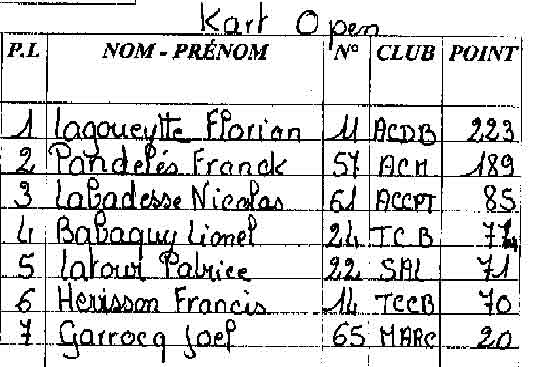 Kart Open
P.L NOM - PRÉNOM N° CLUB POINT
1 Lagoueytte Florian 11 ACDB 223
2 Pandelés Franck 57 ACM 189
3 Labadesse Nicolas 61 ACCPT 85
4 Babaquy Lionel 24 TCB 77
5 Latour Patrice 22 SAL 71
6 Herisson Francis 14 TCCB 70
7 Garrocq Joel 65 MARC 20